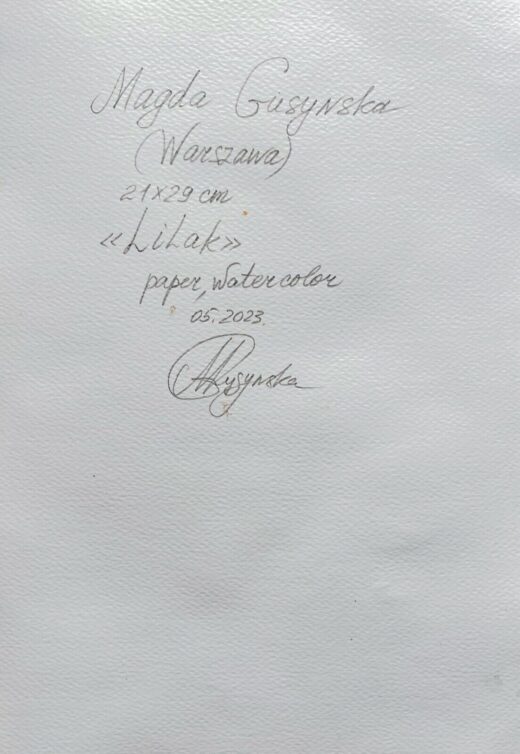 Magda Gusynska
(Warszawa)
21×29 cm
«Lilak»
paper, watercolor
05.2023.